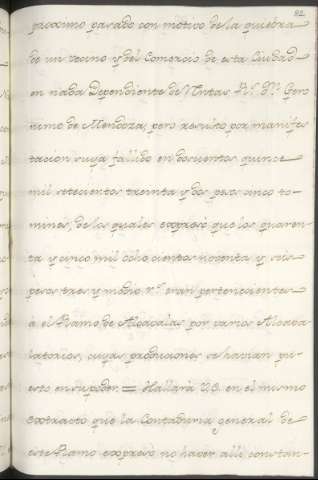 82
proximo pasado con motivo de la quiebra
de un vecino y del Comercio de esta Ciudad
en nada Dependiente de Rentas Rs. Dn. Gero
nimo de Mendoza; pero resulto por manifes
tacion suya fallido en doscientos quince
mil setecientos treinta y dos pesos cinco to-
mines, de los quales expresó que los quaren-
ta y cinco mil ocho cientos noventa y seis
pesos tres y medio rs. eran pertenecientes
á el Ramo de Alcavalas por varios Alcava
latorios, cuyas producciones se havian pu-
esto en su poder. = Hallará V.S. en el mismo
extracto que la Contaduria general de
este Ramo expresó no haver alli constan-